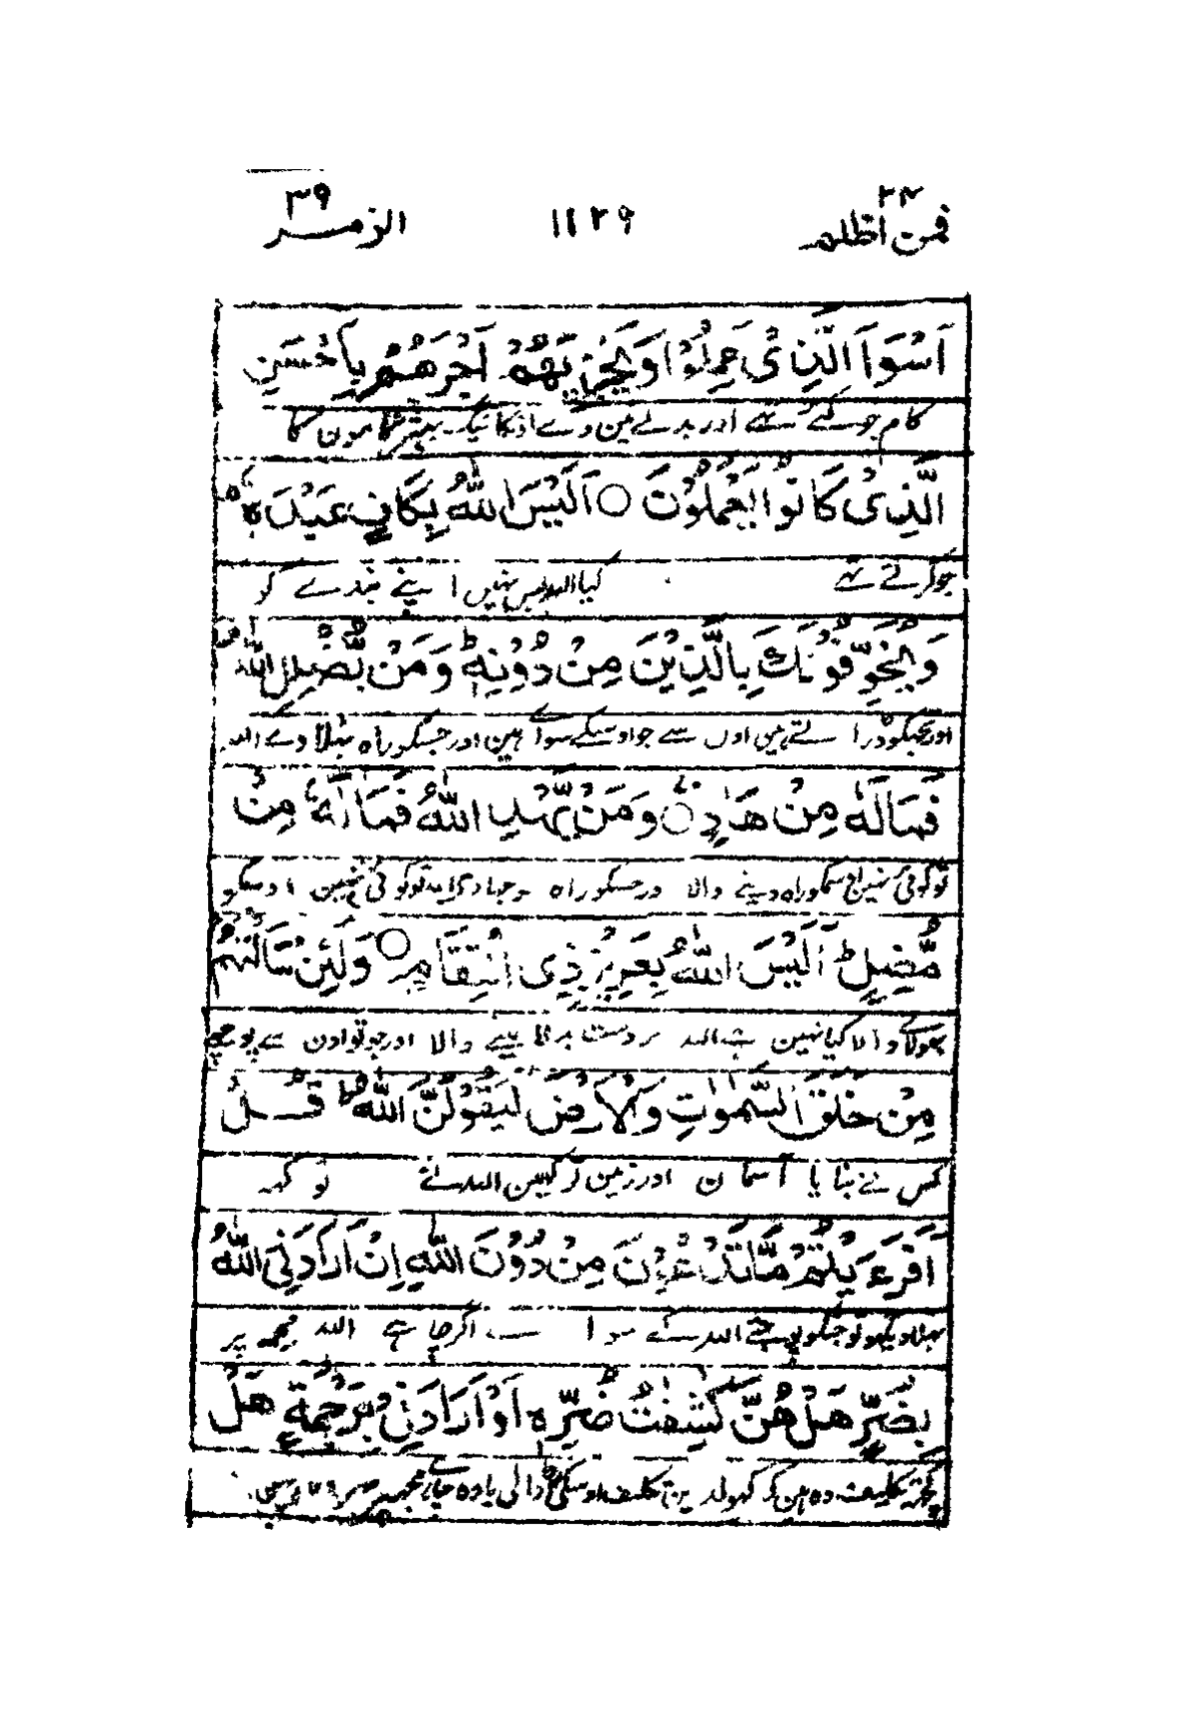 فمن اظلم ٢٤ ١١٢٩ الزمر ٣٩
اَسْوَاَ الَّذِىْ عَمِلُوْا وَيَجْزِيَهُمْ اَجْرَهُمْ بِاَحْسَنِ
کام جو کئے تھے اور بدلے مین دے اونکا نیگ بہتر کامون کا
الَّذِىْ كَانُوْا يَعْمَلُوْنَ ○ اَلَيْسَ اللّٰهُ بِكَافٍ عَبْدَهٗ ؕ
جو کرتے تھے کیا الله بس نہیں اپنے بندے کو
وَيُخَوِّفُوْنَكَ بِالَّذِيْنَ مِنْ دُوْنِهٖ ؕ وَمَنْ يُّضْلِلِ اللّٰهُ
اور تجھکو ڈراتے ہیں اون سے جو اوسکے سوا ہین اور جسکو راہ بھلا دے الله
فَمَالَهٗ مِنْ هَادٍ ○ وَمَنْ يَّهْدِ اللّٰهُ فَمَالَهٗ مِنْ
تو کوئی نہین اوسکو راہ دینے والا اور جسکو راہ سوجھا دے الله تو کوئی نہین اوسکو
مُّضِلٍّ ؕ اَلَيْسَ اللّٰهُ بِعَزِيْزٍ ذِى انْتِقَامٍ ○ وَلَئِنْ سَاَلْتَهُمْ
بھولانے والا کیا نہین ہے الله زبردست بدلا لینے والا اور جو تو اون سے پوچھے
مِنْ خَلَقَ السَّمٰوٰتِ وَالْاَرْضَ لَيَقُوْلُنَّ اللّٰهُ ؕ قُلْ
کس نے بنایا آسمان اور زمین تو کہین الله نے تو کہہ
اَفَرَءَيْتُمْ مَّا تَدْعُوْنَ مِنْ دُوْنِ اللّٰهِ اِنْ اَرَادَنِىَ اللّٰهُ
بھلا دیکھو تو جنکو پوجتے الله کے سوا اگر چاہے الله مجھ پر
بِضُرٍّ هَلْ هُنَّ كٰشِفٰتُ ضُرِّهٖٓ اَوْ اَرَادَنِىْ بِرَحْمَةٍ هَلْ
کچھ تکلیف وہ ہین کہ کھولدین تکلیف اوسکی ڈالی یا وہ چاہے مجھپر